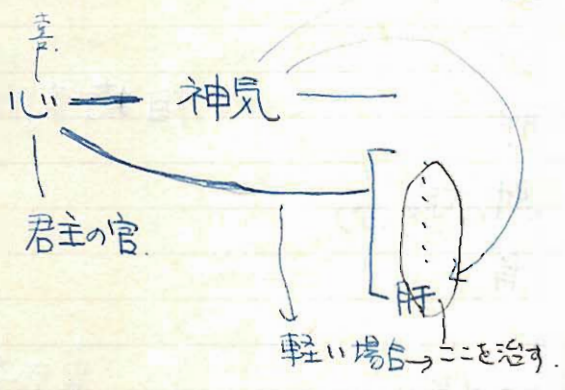 喜
心 神気
君主の官.
肝
軽い場合→ここを治す.